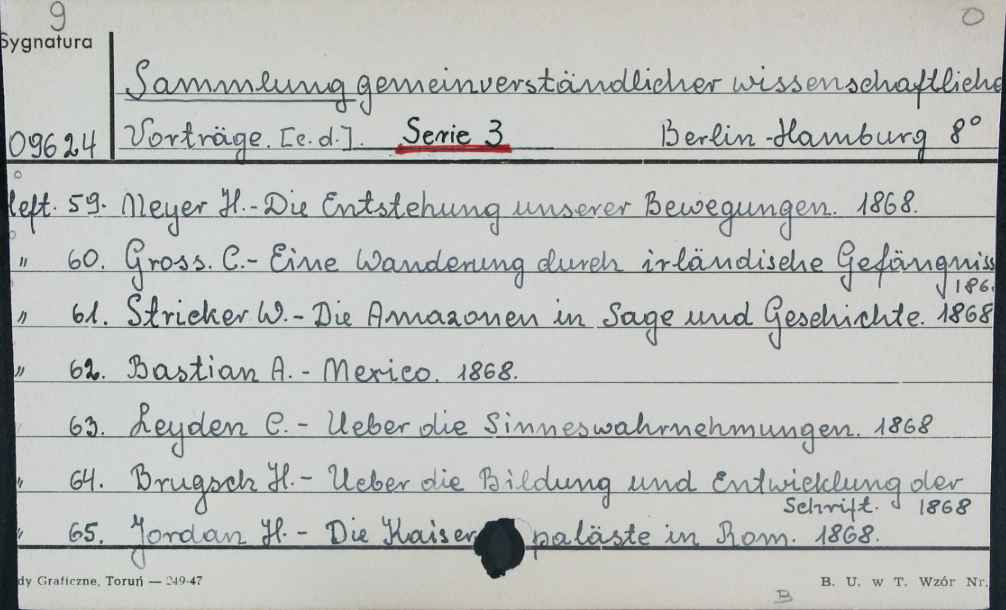 9
Sygnatura
Sammlung gemeinverständlicher wissenschaftliche
09624 Vorträge. [e.d.]. Serie 3 Berlin-Hamburg 8°
Heft. 59. Meyer H.- Die Entstehung unserer Bewegungen. 1868.
" 60. Gross. C.- Eine Wanderung durch irländische Gefängniss
186.
" 61. Stricker W.- Die Amazonen in Sage und Geschichte. 1868
" 62. Bastian A. - Mexico. 1868.
63. Leyden C. - Ueber die Sinneswahrnehmungen. 1868
" 64. Brugsch H.- Ueber die Bildung und Entwicklung der
Schrift. 1868
" 65. Jordan H. - Die Kaiserpaläste in Rom. 1868.
dy Graficzne, Toruń — 249-47 B. U. w T. Wzór Nr.
B